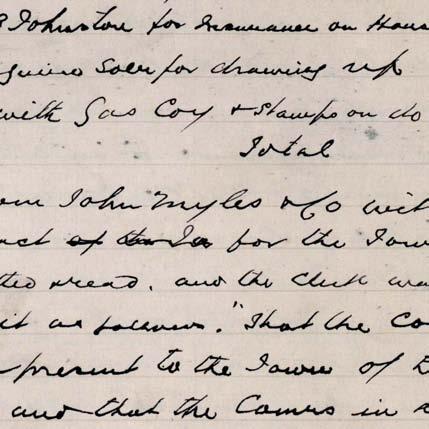 Johnstone for Insurance on Hous
Solr for drawing up
with Gas Coy & Stamps on do
Total
John Myles & Co wit
act of the for the Town
read. and the Clerk
it as follows. "That the Co
present to the Town of
and that the Comrs in